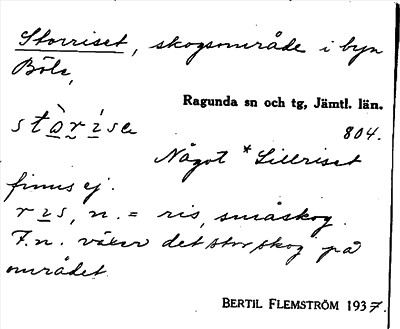 Storriset, skogsområde i byn
Böle,
Ragunda sn och tg, Jämtl. län.
stòríse 804.
Något *Lillriset
finns ej.
ris, n. = ris, småskog.
F.n. växer det stor skog på
området.
BERTIL FLEMSTRÖM 1937.